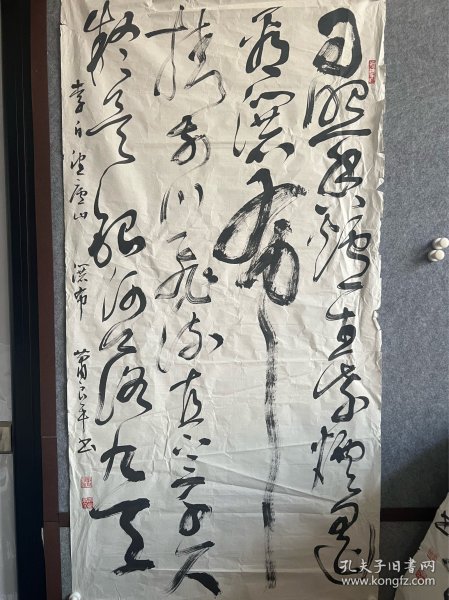 日照香爐生紫煙遥
看瀑布
挂前川飛流直下三千尺
疑是銀河落九天
李白望廬山瀑布 蕭良平书
孔夫子旧书网
www.kongfz.com